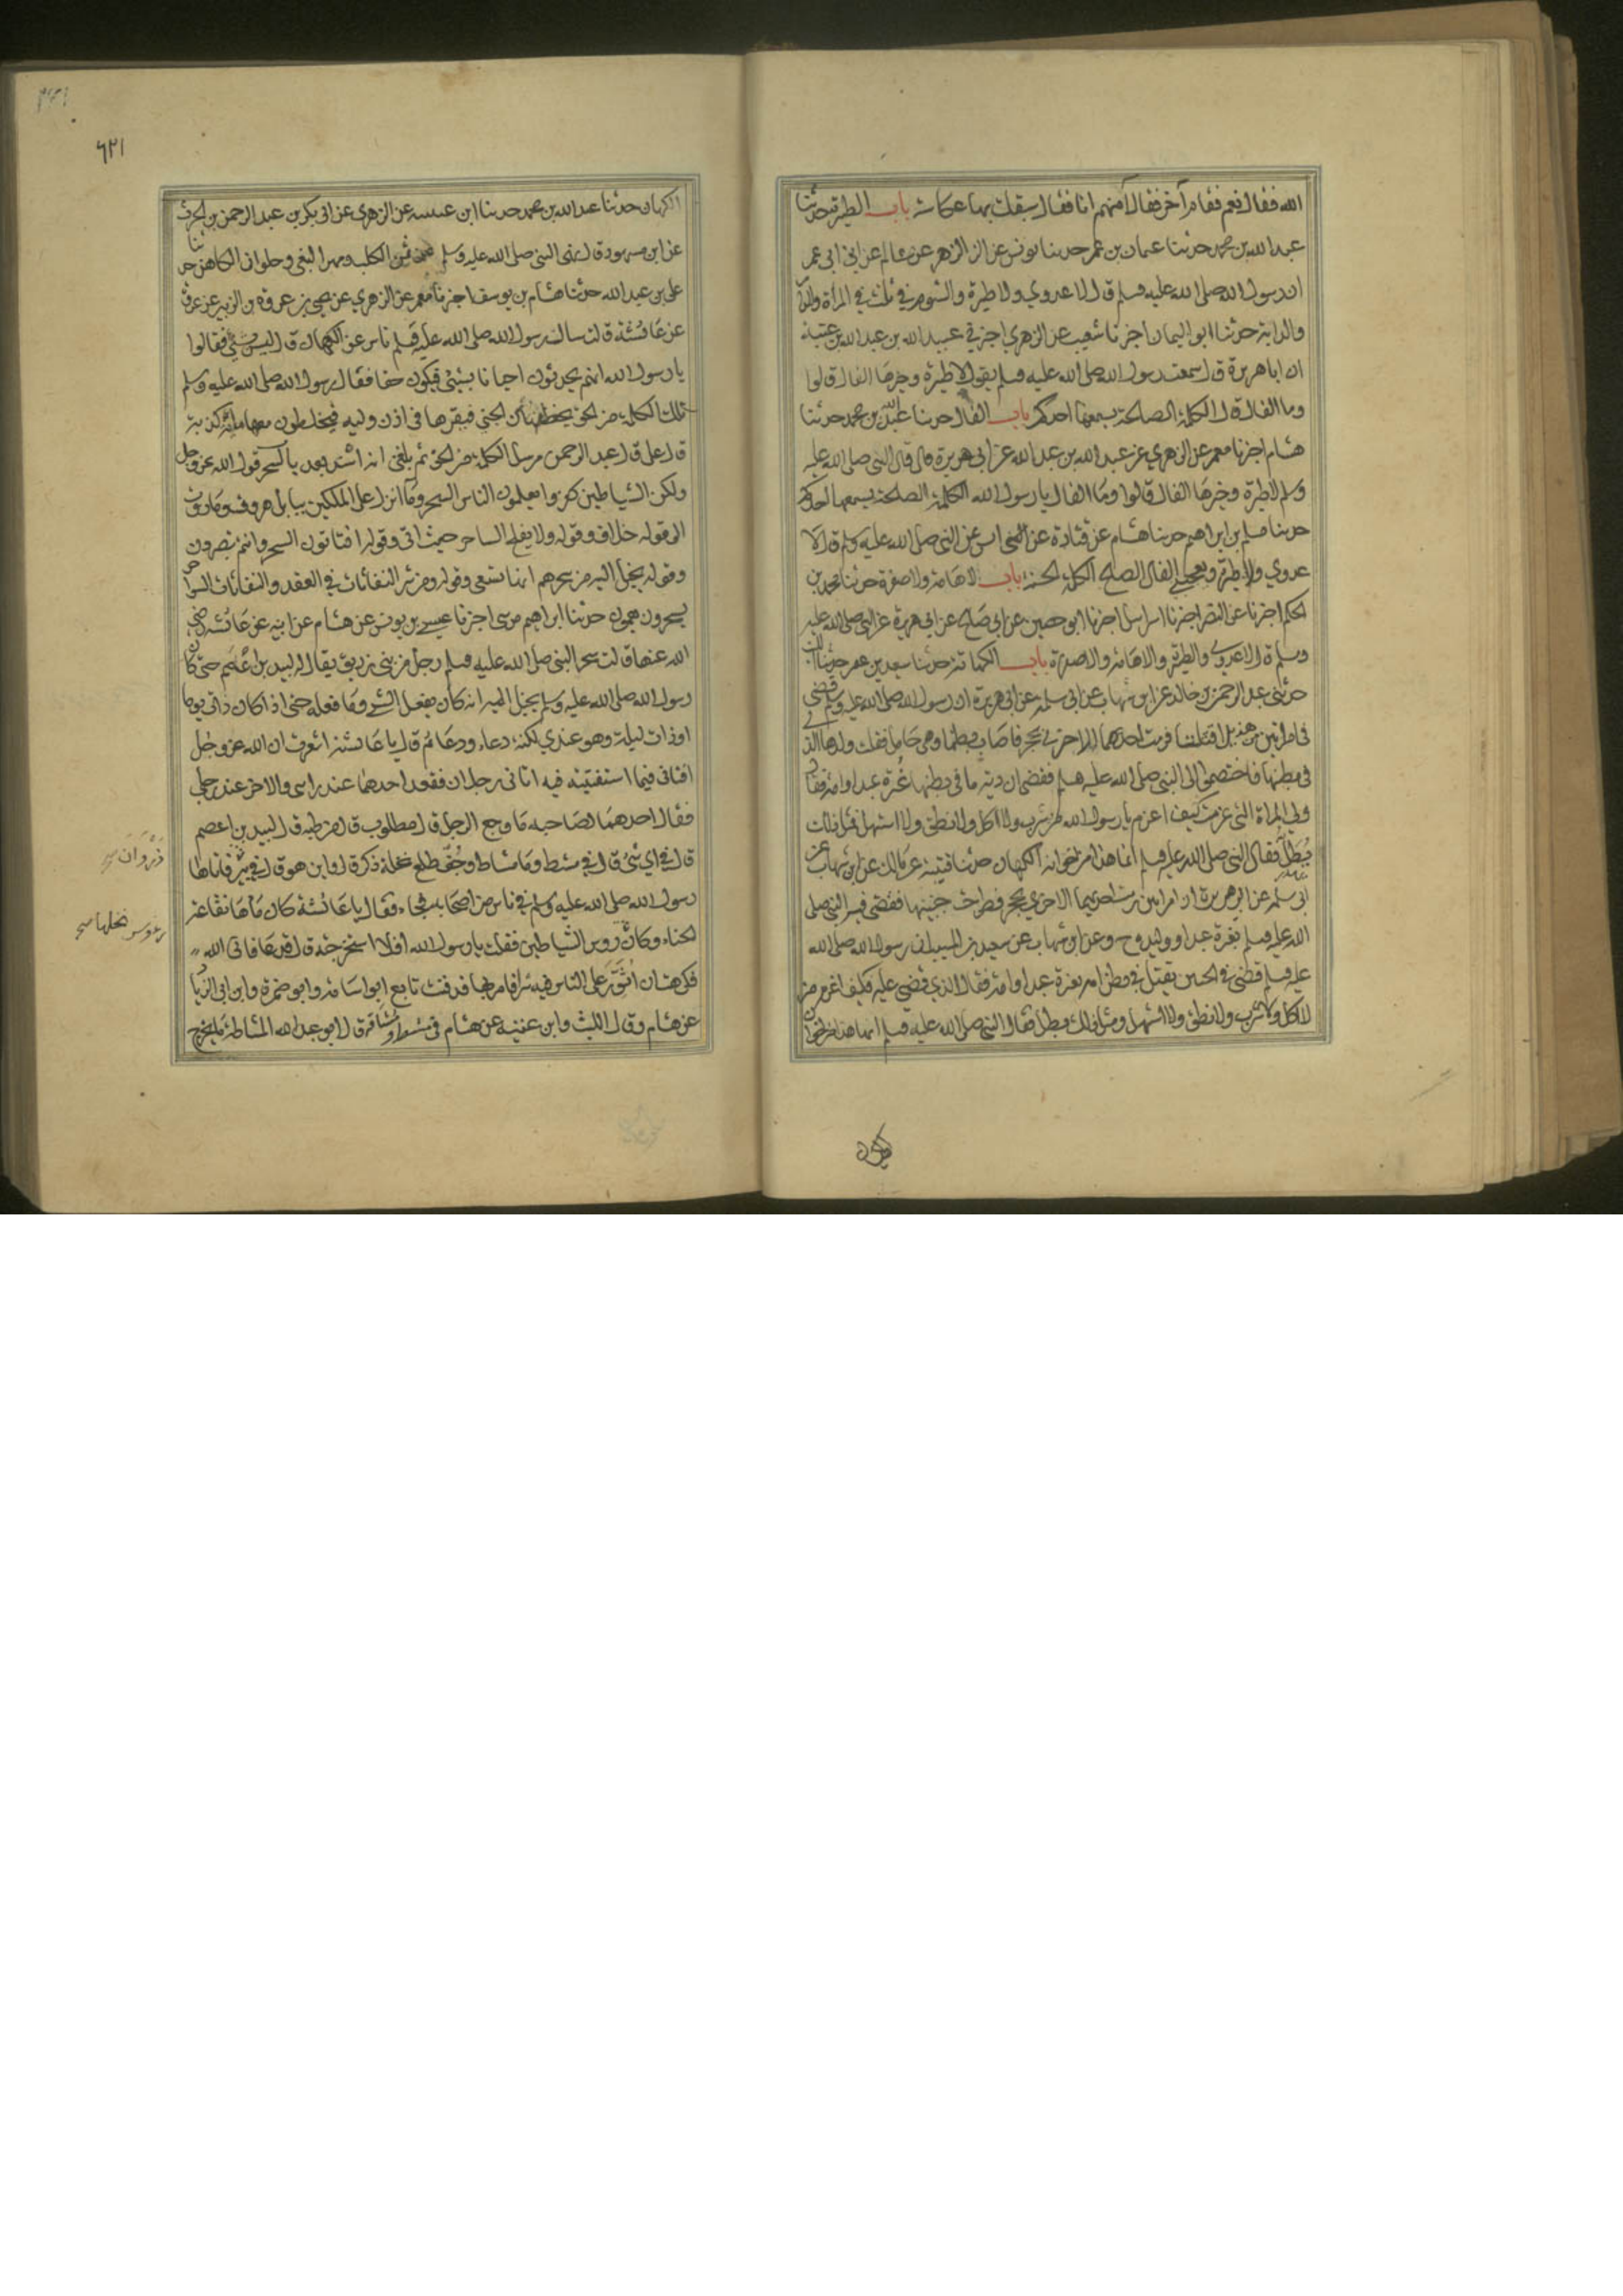 الله فقال نعم فقام آخر فقال أمنهم انا فقال سبقك بها عكاشه باب الطيرة حدثنا
عبد الله بن محمد حدثنا عثمان بن عمر حدثنا يونس عن الزهر عن سالم عن ابن عمر
ان رسول الله صلى الله عليه وسلم قال لا عدوي ولا طيرة والشوم في ثلث في المرأة والدار
والدابة حدثنا ابو اليمان اخبرنا شعيب عن الزهري اخبرني عبيد الله بن عبد الله بن عتبة
ان ابا هريرة قال سمعت رسول الله صلى الله عليه وسلم يقول لا طيرة وخيرها الفال قالوا
وما الفال قال الكلمة الصالحة يسمعها احدكم باب الفال حدثنا عبد الله بن محمد حدثنا
هشام اخبرنا معمر عن الزهري عن عبيد الله بن عبد الله عن ابي هريرة قال قال النبي صلى الله عليه
وسلم لا طيرة وخيرها الفال قالوا وما الفال يا رسول الله الكلمة الصلحة يسمعها احدكم
حدثنا مسلم بن ابراهيم حدثنا هشام عن قتادة عن انس عن النبي صلى الله عليه وسلم قال لا
عدوي ولا طيرة ويعجبني الفال الصالح الكلمة الحسنة باب لا هامة ولا صفرة حدثنا محمد بن
الحكم اخبرنا النضر اخبرنا اسرائيل اخبرنا ابو حصين عن ابي صالح عن ابي هريرة عن النبي صلى الله عليه
وسلم قال لا عدوي ولا طيرة ولا هامة ولا صفرة باب الكهانة حدثنا سعيد بن عفير حدثنا الليث
حدثني عبد الرحمن بن خالد عن ابن شهاب عن ابي سلمة عن ابي هريرة ان رسول الله صلى الله عليه وسلم قضى
في امراتين من هذيل اقتتلتا فرمت احدهما الاخرى بحجر فاصاب بطنها وهي حامل فقتلت ولدها الذي
في بطنها فاختصموا الى النبي صلى الله عليه وسلم فقضى ان دية ما في بطنها غرة عبد او امة فقال
ولي المراة التي غرمت كيف اغرم يا رسول الله من لا شرب ولا اكل ولا نطق ولا استهل فمثل ذلك
بطل فقال النبي صلى الله عليه وسلم انما هذا من اخوان الكهان حدثنا قتيبة عن مالك عن ابن شهاب عن
ابي سلمة عن ابي هريرة ان امراتين رمت احديهما الاخري بحجر فطرحت جنينها فقضى فيه النبي صلى
الله عليه وسلم بغرة عبد او وليدة ح وعن ابن شهاب عن سعيد بن المسيب ان رسول الله صلى الله
عليه وسلم قضى في الجنين يقتل في بطن امه بغرة عبد او امة فقال الذي قضي عليه كيف اغرم من
لا اكل ولا شرب ولا نطق ولا استهل ومثل ذلك بطل فقال النبي صلى الله عليه وسلم انما هذا من اخوان
الكهان
الكهان حدثنا عبد الله بن محمد حدثنا ابن عيينة عن الزهري عن ابي بكر بن عبد الرحمن بن الحرث
عن ابن مسعود قال نهى النبي صلى الله عليه وسلم عن ثمن الكلب ومهر البغي وحلوان الكاهن حدثنا
علي بن عبد الله حدثنا هشام بن يوسف اخبرنا معمر عن الزهري عن يحيى بن عروة بن الزبير عن عروة
عن عائشة قالت سال رسول الله صلى الله عليه وسلم ناس عن الكهان قال ليس بشي فقالوا
يا رسول الله انهم يحدثون احيانا بشيئ فيكون حقا فقال رسول الله صلى الله عليه وسلم
تلك الكلمة من الحق يخطفها من الجني فيقرها في اذن وليه فيخلطون معها مائة كذبة
قال علي قال عبد الرحمن مرسل الكلمة من الحق ثم بلغني انه اسنده بعد باب السحر وقول الله عز وجل
ولكن الشياطين كفروا يعلمون الناس السحر وما انزل على الملكين ببابل هروت وماروت
الى قوله خلاق وقوله ولا يفلح الساحر حيث اتى وقوله افتاتون السحر وانتم تبصرون
وقوله يخيل اليه من سحرهم انها تسعى وقوله ومن شر النفاثات في العقد والنفاثات السواحر
يسحرون تعمون حدثنا ابراهيم بن موسى اخبرنا عيسى بن يونس عن هشام عن ابيه عن عائشة رضي
الله عنها قالت سحر النبي صلى الله عليه وسلم رجل من بني زريق يقال له لبيد بن اعصم حتى كان
رسول الله صلى الله عليه وسلم يخيل اليه انه كان يفعل الشي وما فعله حتى اذا كان ذات يوم
او ذات ليلة وهو عندي لكنه دعاء ودعا ثم قال يا عائشة اشعرت ان الله عز وجل
افتاني فيما استفتيته فيه اتاني رجلان فقعد احدهما عند راسي والاخر عند رجلي
فقال احدهما لصاحبه ما وجع الرجل قال مطلوب قال من طبه قال لبيد بن اعصم
قال في اي شئ قال في مشط ومشاط وجف طلع نخلة ذكر قال واين هو قال في بئر فاتاها
رسول الله صلى الله عليه وسلم في ناس من اصحابه فجاء فقال يا عائشة كان ماءها نقاعة
الحناء وكان روس الشياطين فقلت يا رسول الله افلا استخرجته قال قد عافاني الله
فكرهت ان اثور على الناس فيه شرا فامر بها فدفنت تابعه ابو اسامة وابو ضمرة وابن ابي الزناد
عن هشام وقال الليث وابن عيينة عن هشام في مشط ومشاقة قال ابو عبد الله المشاطة ما يخرج
ذروان
رءوس نخلها
٦٢١